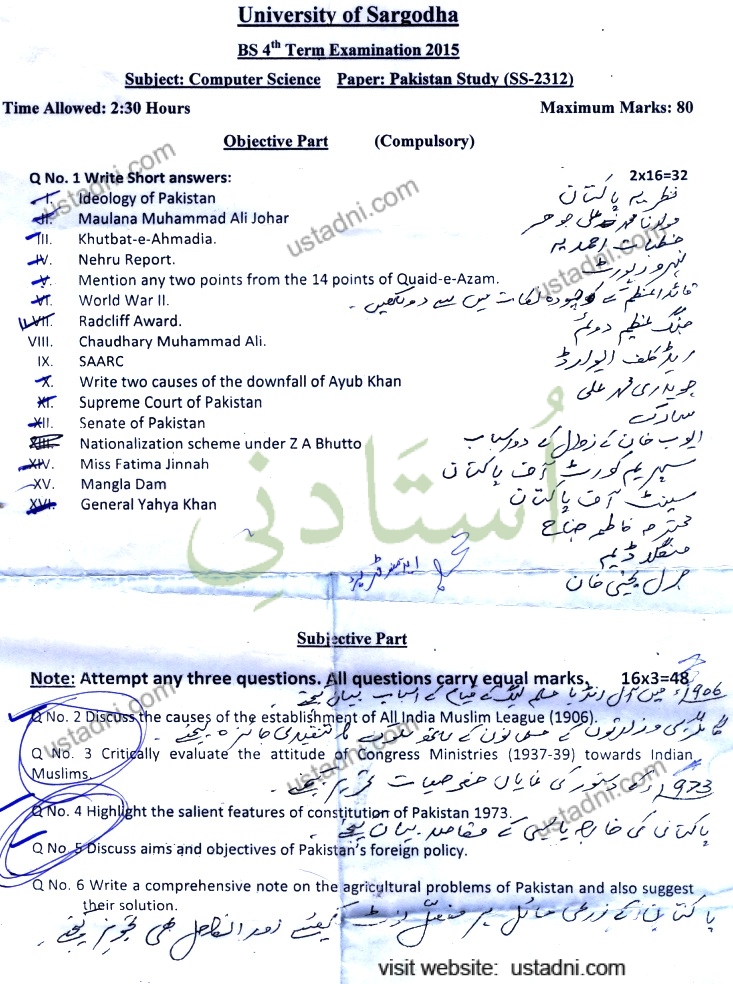 University of Sargodha
BS 4th Term Examination 2015
Subject: Computer Science Paper: Pakistan Study (SS-2312)
Time Allowed: 2:30 Hours Maximum Marks: 80
Objective Part (Compulsory)
Q No. 1 Write Short answers: 2x16=32
I. Ideology of Pakistan نظریہ پاکستان
II. Maulana Muhammad Ali Johar مولانا محمد علی جوہر
III. Khutbat-e-Ahmadia. خطبات احمدیہ
IV. Nehru Report. نہرو رپورٹ
V. Mention any two points from the 14 points of Quaid-e-Azam.
قائداعظم کے چودہ نکات میں سے دو لکھیں۔
VI. World War II. جنگ عظیم دوئم
VII. Radcliff Award. ریڈ کلف ایوارڈ
VIII. Chaudhary Muhammad Ali. چوہدری محمد علی
IX. SAARC سارک
X. Write two causes of the downfall of Ayub Khan ایوب خان کے زوال کے دو اسباب
XI. Supreme Court of Pakistan سپریم کورٹ آف پاکستان
XII. Senate of Pakistan سینٹ آف پاکستان
XIII. Nationalization scheme under Z A Bhutto
XIV. Miss Fatima Jinnah محترمہ فاطمہ جناح
XV. Mangla Dam منگلا ڈیم
XVI. General Yahya Khan جنرل یحییٰ خان
اُستادنی
Subjective Part
Note: Attempt any three questions. All questions carry equal marks. 16x3=48
1906ء میں آل انڈیا مسلم لیگ کے قیام کے اسباب بیان کیجئے
Q No. 2 Discuss the causes of the establishment of All India Muslim League (1906).
کانگریسی وزارتوں کے مسلمانوں کے ساتھ تنقیدی جائزہ کیجئے
Q No. 3 Critically evaluate the attitude of Congress Ministries (1937-39) towards Indian
Muslims.
1973ء کے دستور کی نمایاں خصوصیات تحریر کیجئے
Q No. 4 Highlight the salient features of constitution of Pakistan 1973.
پاکستان کی خارجہ پالیسی کے مقاصد بیان کیجئے
Q No. 5 Discuss aims and objectives of Pakistan's foreign policy.
Q No. 6 Write a comprehensive note on the agricultural problems of Pakistan and also suggest
their solution.
پاکستان کے زرعی مسائل پر مفصل نوٹ لکھیئے اور ان کا حل بھی تجویز کیجئے
ustadni.com
ustadni.com
ustadni.com
ustadni.com
ustadni.com
ustadni.com
ustadni.com
visit website: ustadni.com